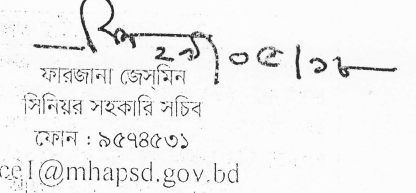 ২৯/০৫/১৮
ফারজানা জেসমিন
সিনিয়র সহকারি সচিব
ফোন : ৯৫৭৪৫৩১
ce1@mhapsd.gov.bd